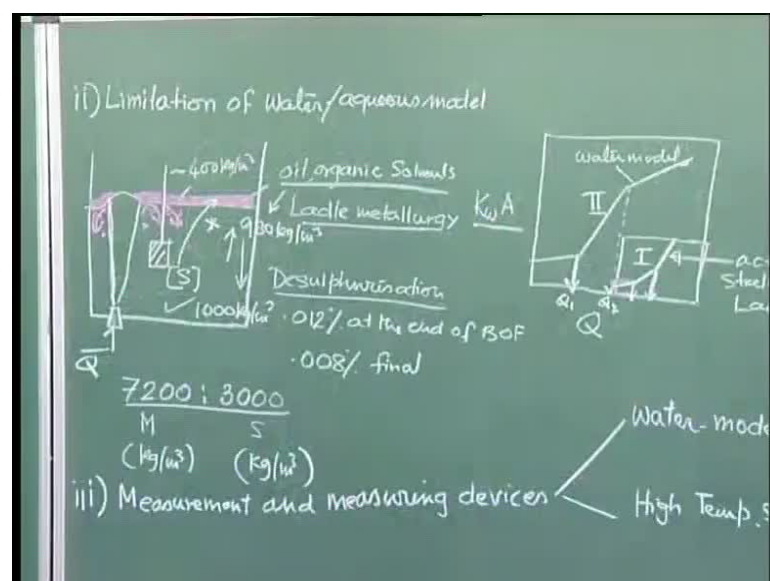 ii) Limitation of water/aqueous model
~400kg/m³
oil, organic Solvents
Ladle metallurgy
KωA
930kg/m³
[S]
Desulphurisation
1000kg/m³
.012% at the end of BOF
.008% final
Q
7200 : 3000
M S
(kg/m³) (kg/m³)
water model
II
I
Q₁ Q₂
Q
iii) Measurement and measuring devices
Water-mode
High Temp. S